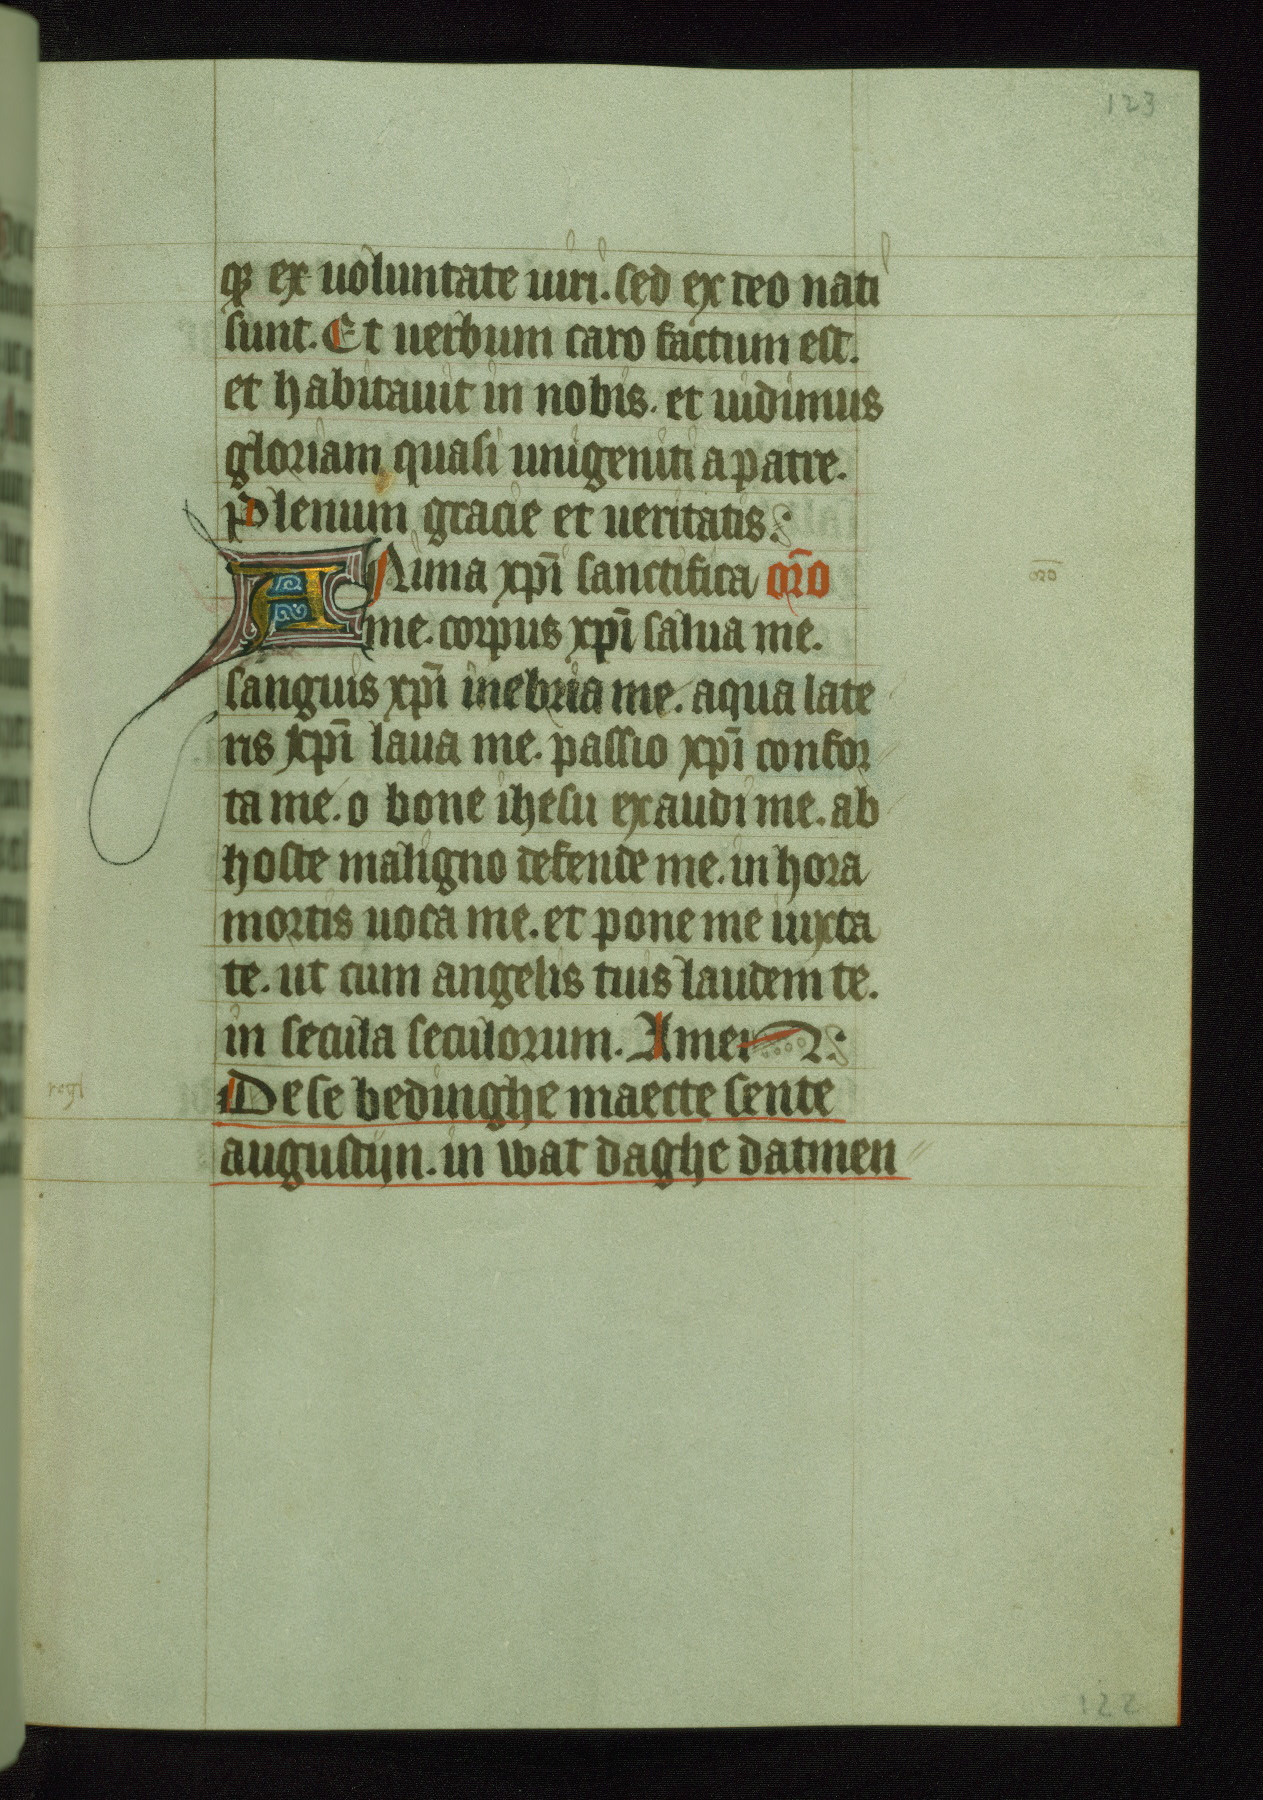 123
qꝫ ex uoluntate uiri. sed ex deo nati
sunt. Et uerbum caro factum est.
et habitauit in nobis. et uidimus
gloriam quasi unigeniti a patre.
Plenum gracie et ueritatis:
Anima xp̄i sanctifica or̄o
me. corpus xp̄i salua me.
sanguis xp̄i inebria me. aqua late
ris xp̄i laua me. passio xp̄i confor
ta me. o bone ihesu exaudi me. ab
hoste maligno defende me. in hora
mortis uoca me. et pone me iuxta
te. ut cum angelis tuis laudem te.
in secula seculorum. Amen:
Dese bedinghe maecte sente
augustijn. in wat daghe datmen
or̄o
122